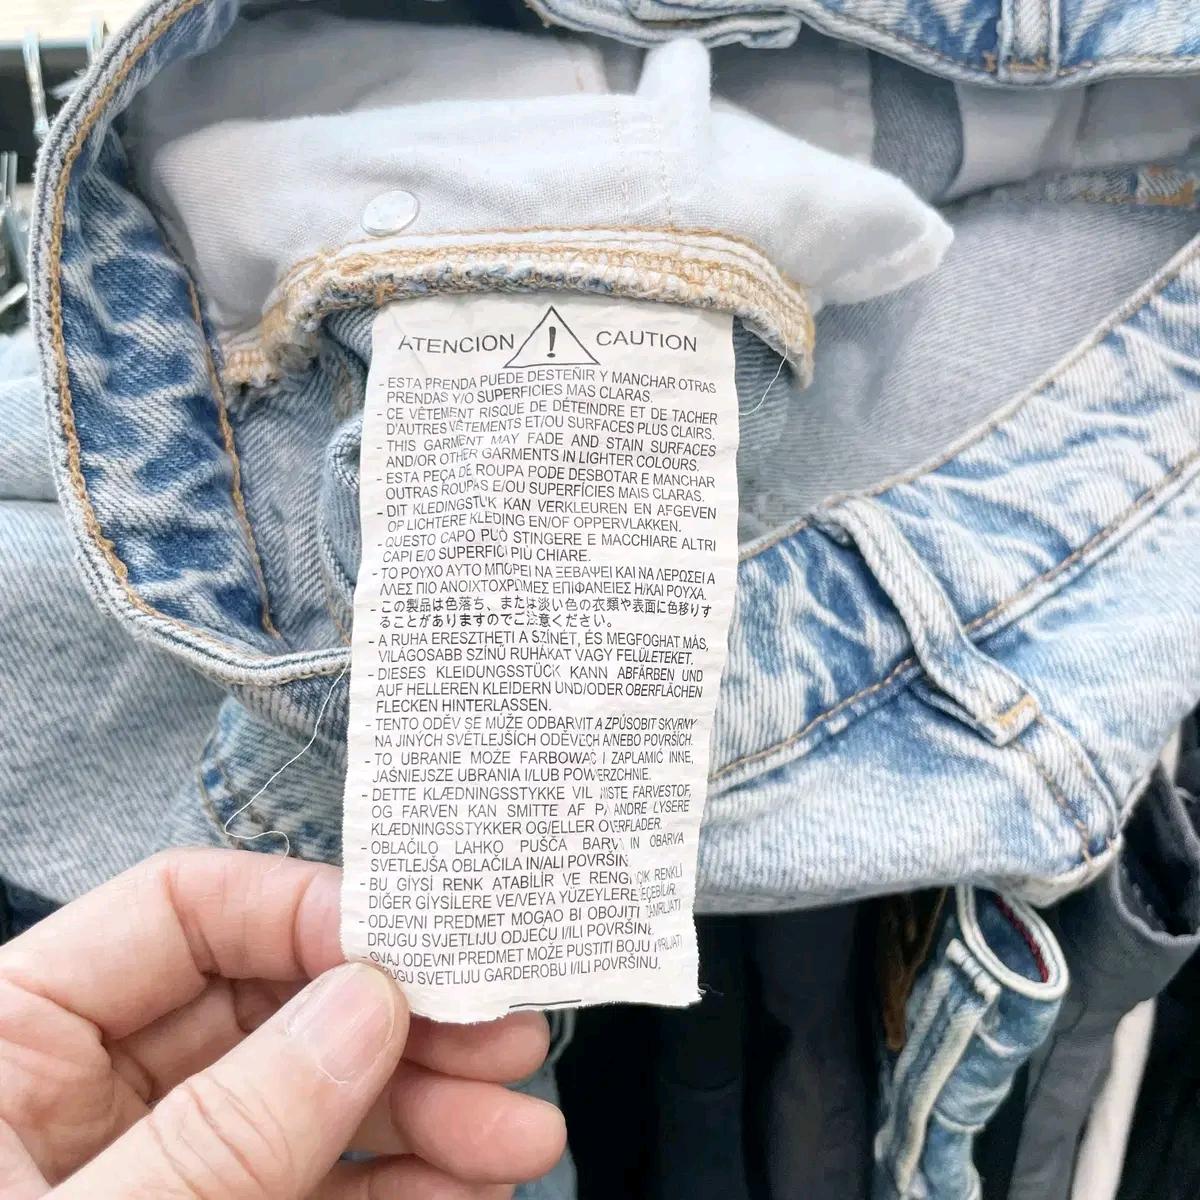 ATENCION ! CAUTION
- ESTA PRENDA PUEDE DESTEÑIR Y MANCHAR OTRAS
PRENDAS Y/O SUPERFICIES MAS CLARAS.
- CE VÊTEMENT RISQUE DE DÉTEINDRE ET DE TACHER
D'AUTRES VÊTEMENTS ET/OU SURFACES PLUS CLAIRS.
- THIS GARMENT MAY FADE AND STAIN SURFACES
AND/OR OTHER GARMENTS IN LIGHTER COLOURS.
- ESTA PEÇA DE ROUPA PODE DESBOTAR E MANCHAR
OUTRAS ROUPAS E/OU SUPERFÍCIES MAIS CLARAS.
- DIT KLEDINGSTUK KAN VERKLEUREN EN AFGEVEN
OP LICHTERE KLEDING EN/OF OPPERVLAKKEN.
- QUESTO CAPO PUÒ STINGERE E MACCHIARE ALTRI
CAPI E/O SUPERFICI PIÙ CHIARE.
- ΤΟ ΡΟΥΧΟ ΑΥΤΟ ΜΠΟΡΕΙ ΝΑ ΞΕΒΑΨΕΙ ΚΑΙ ΝΑ ΛΕΡΩΣΕΙ Α
ΛΛΕΣ ΠΙΟ ΑΝΟΙΧΤΟΧΡΩΜΕΣ ΕΠΙΦΑΝΕΙΕΣ Η/ΚΑΙ ΡΟΥΧΑ.
- この製品は色落ち、または淡い色の衣類や表面に色移りす
ることがありますのでご注意ください。
- A RUHA ERESZTHETI A SZÍNÉT, ÉS MEGFOGHAT MÁS,
VILÁGOSABB SZÍNŰ RUHÁKAT VAGY FELÜLETEKET.
- DIESES KLEIDUNGSSTÜCK KANN ABFÄRBEN UND
AUF HELLEREN KLEIDERN UND/ODER OBERFLÄCHEN
FLECKEN HINTERLASSEN.
- TENTO ODĚV SE MŮŽE ODBARVIT A ZPŮSOBIT SKVRNY
NA JINÝCH SVĚTLEJŠÍCH ODĚVECH A/NEBO POVRŠÍCH.
- TO UBRANIE MOŻE FARBOWAĆ I ZAPLAMIĆ INNE,
JAŚNIEJSZE UBRANIA I/LUB POWIERZCHNIE.
- DETTE KLÆDNINGSSTYKKE VIL MISTE FARVESTOF,
OG FARVEN KAN SMITTE AF PÅ ANDRE LYSERE
KLÆDNINGSSTYKKER OG/ELLER OVERFLADER.
- OBLAČILO LAHKO PUŠČA BARVO IN OBARVA
SVETLEJŠA OBLAČILA IN/ALI POVRŠINE.
- BU GİYSİ RENK ATABİLİR VE RENGİ AÇIK RENKLİ
DİĞER GİYSİLERE VE/VEYA YÜZEYLERE GEÇEBİLİR.
- ODJEVNI PREDMET MOGAO BI OBOJITI I ZAMRLJATI
DRUGU SVJETLIJU ODJEĆU I/ILI POVRŠINE.
- OVAJ ODEVNI PREDMET MOŽE PUSTITI BOJU I PRLJATI
DRUGU SVETLIJU GARDEROBU I/ILI POVRŠINU.